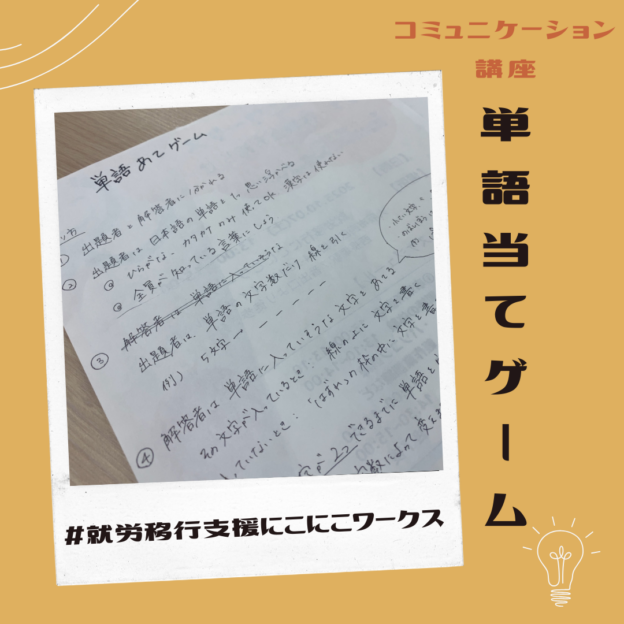 コミュニケーション
講座
単語当てゲーム
単語あてゲーム
① 出題者と解答者に分かれる
② 出題者は日本語の単語を1つ思い浮かべる
ひらがな、カタカナのみ使ってOK 漢字は使わない
全員が知っている言葉にしよう
解答者は単語に入っていそうな
③ 出題者は、単語の文字数だけ線を引く
例) 5文字→ ー ー ー ー ー
④ 解答者は単語に入っていそうな文字をあげる
その文字が入っているとき:線の上に文字を書く
していないとき:「はずれ」の枠の中に文字を書
できるまでに単語を
数によって変え
#就労移行支援にこにこワークス